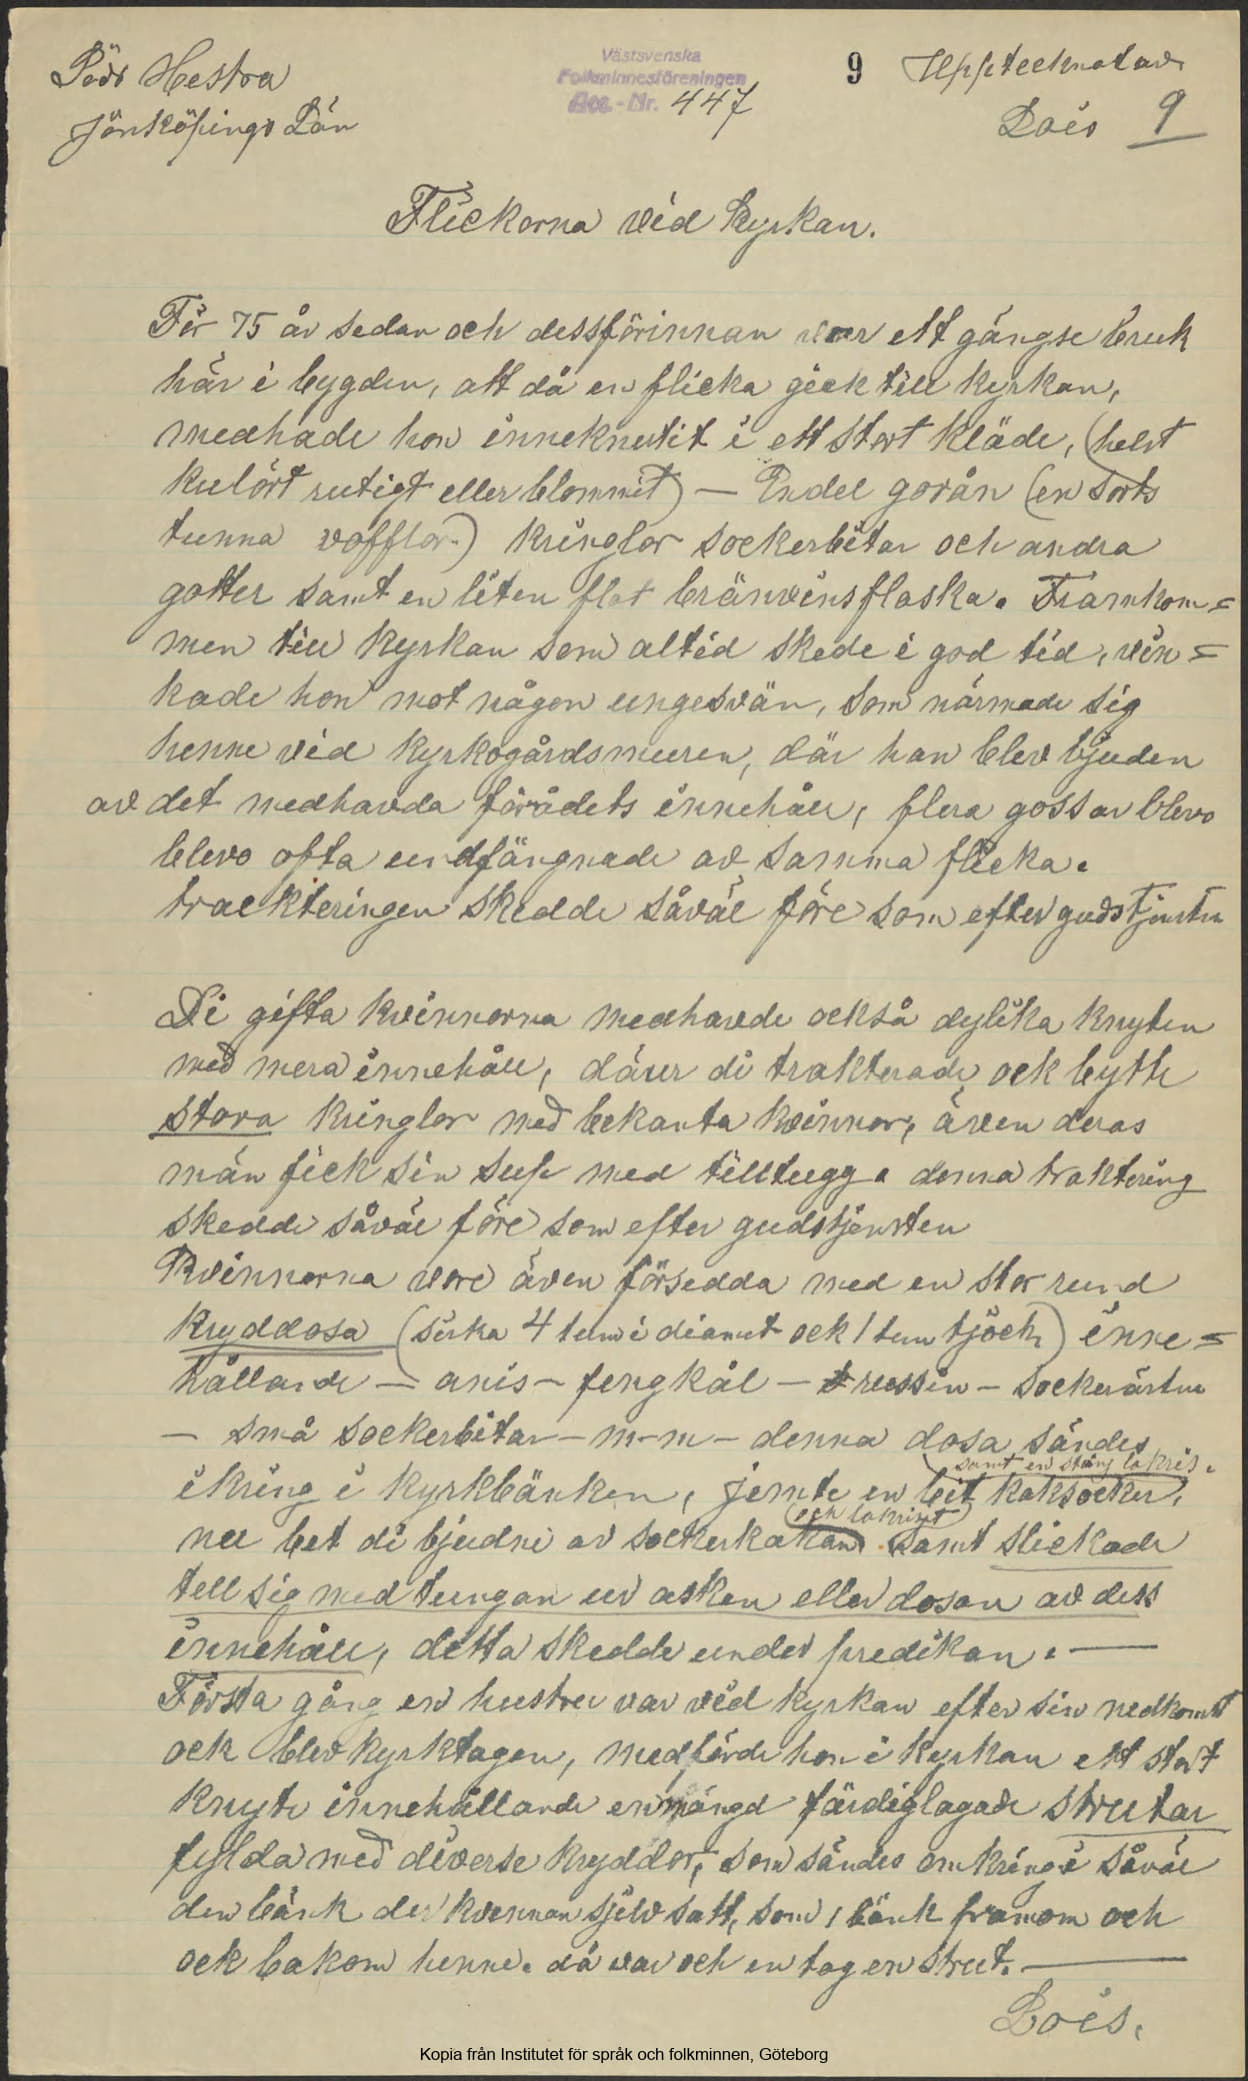 Södr Hestra
Jönköpings Län
Västsvenska
Folkminnesföreningen
Acc.-Nr. 447
9
Upptecknat av
Loïs 9
Flickorna vid Kyrkan.
För 75 år sedan och dessförinnan var ett gängse bruk
här i bygden, att då en flicka gick till kyrkan,
medhade hon inneknutit i ett stort kläde, (helst
kulört rutigt eller blommit) — Endel gorån (en sorts
tunna vofflor) kringlor sockerbitar och andra
gotter samt en liten flat bränvinsflaska. Framkom=
men till kyrkan som altid skede i god tid, vin=
kade hon mot någon ungesvän, som närmade sig
henne vid kyrkogårdsmuren, där han blev bjuden
av det medhavda förrådets innehåll, flera gossar blevo
blevo ofta undfängnade av samma flicka.
trackteringen skedde såväl före som efter gudstjensten
Di gifta kvinnorna medhavde också dylika knyten
med mera innehåll, därur di trakterade ock bytte
stora kringlor med bekanta kvinnor, även deras
män fick sin sup med tilltugg. denna traktering
skedde såväl före som efter gudstjensten
Kvinnorna vore även försedda med en stor rund
kryddosa (sirka 4 tum i diamet ock 1 tum tjock) inne=
hållande — anis — fengkål — russin — sockerärter
— små sockerbitar — m-m — denna dosa sändes
samt en stång lakris.
ikring i kyrkbänken, jemte en bit kaksocker,
och lakrist
nu bet di bjudni av sockerkakan samt slickade
tell sig med tungan ur asken eller dosan av dess
innehåll, detta skedde under predikan. —
Första gång en hustru var vid kyrkan efter sin nedkomst
ock blev kyrktagen, medförde hon i kyrkan ett stort
knyte innehållande en mängd färdiglagade strutar
fylda med diverse kryddor, som sändes omkring i såväl
den bänk der kvinnan sjelv satt, som 1 bänk framom och
ock bakom henne. då var och en tog en strut. —
Loïs.
Kopia från Institutet för språk och folkminnen, Göteborg